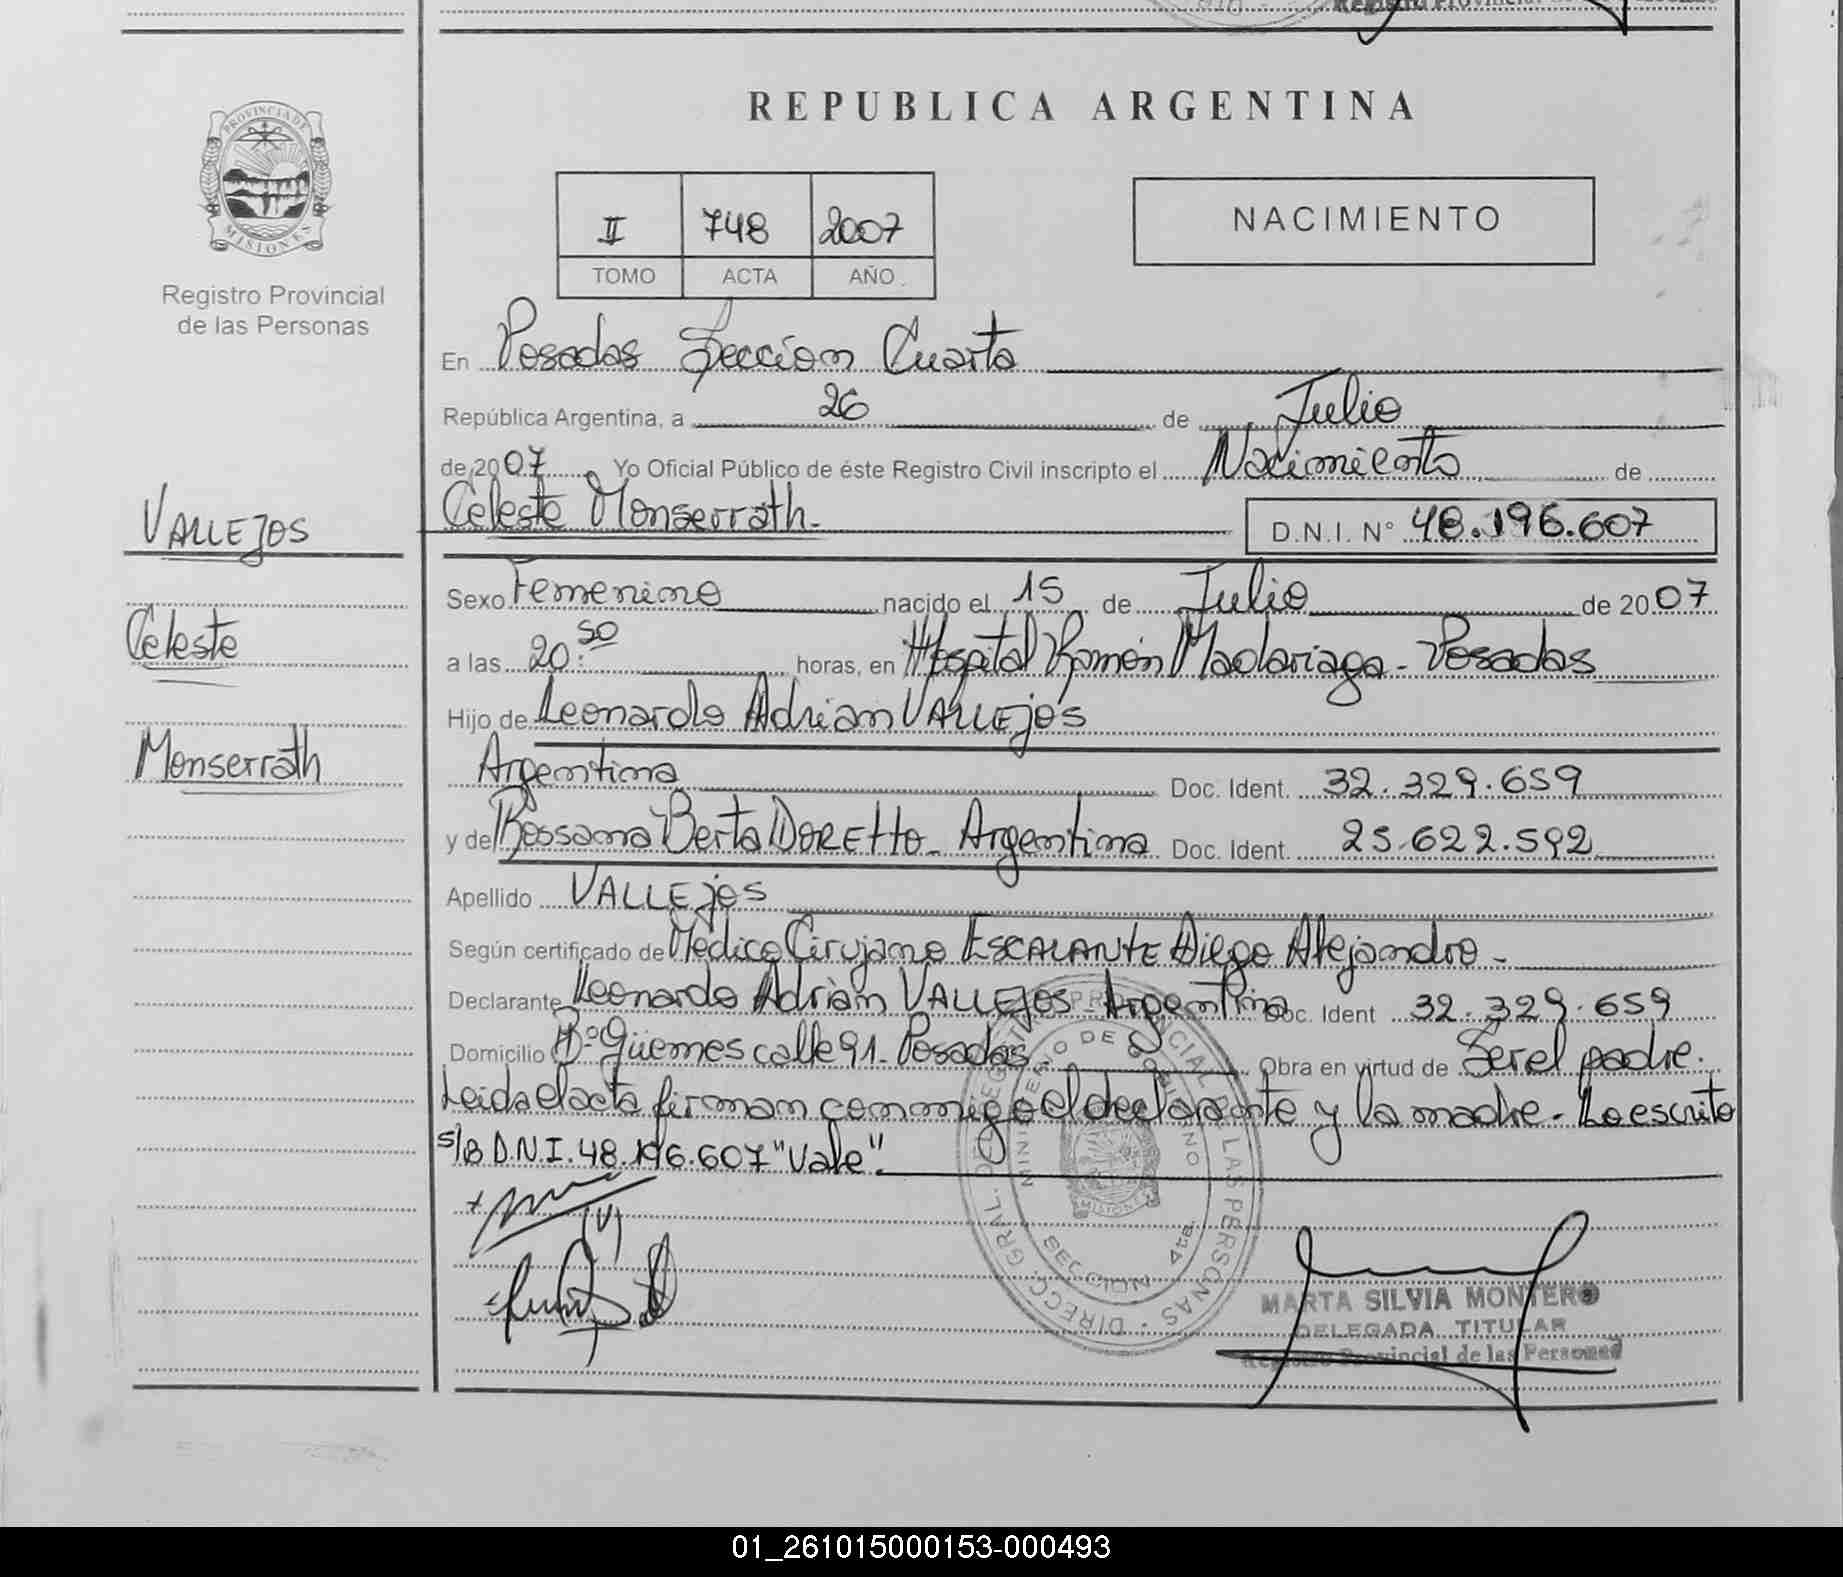 Registro Provincial de las Personas
REPUBLICA ARGENTINA
PROVINCIA DE
MISIONES
Registro Provincial
de las Personas
II 748 2007
TOMO ACTA AÑO
NACIMIENTO
En Posadas Sección Cuarta
República Argentina, a 26 de Julio
de 2007 Yo Oficial Público de éste Registro Civil inscripto el Nacimiento de
VALLEJOS
Celeste Monserrath.
D.N.I. N° 48.196.607
Sexo Femenino nacido el 15 de Julio de 2007
Celeste
a las 20:50 horas, en Hospital Ramón Madariaga - Posadas
Hijo de Leonardo Adrian VALLEJOS
Monserrath
Argentina Doc. Ident. 32.329.659
y de Rossana Berta DORETTO - Argentina Doc. Ident. 25.622.592
Apellido VALLEJOS
Según certificado de Médico Cirujano ESCALANTE Diego Alejandro -
Declarante Leonardo Adrian VALLEJOS Argentina Doc. Ident 32.329.659
Domicilio B° Güemes calle 91 - Posadas Obra en virtud de Ser el padre.
Leida el acta firman conmigo el declarante y la madre - Lo escrito
s/B D.N.I. 48.196.607 "Vale".
DIRECC. GRAL. DEL REGISTRO PROVINCIAL DE LAS PERSONAS
MINISTERIO DE GOBIERNO
MISIONES
SECCION 4ta.
MARTA SILVIA MONTERO
DELEGADA TITULAR
Registro Provincial de las Personas
01_261015000153-000493